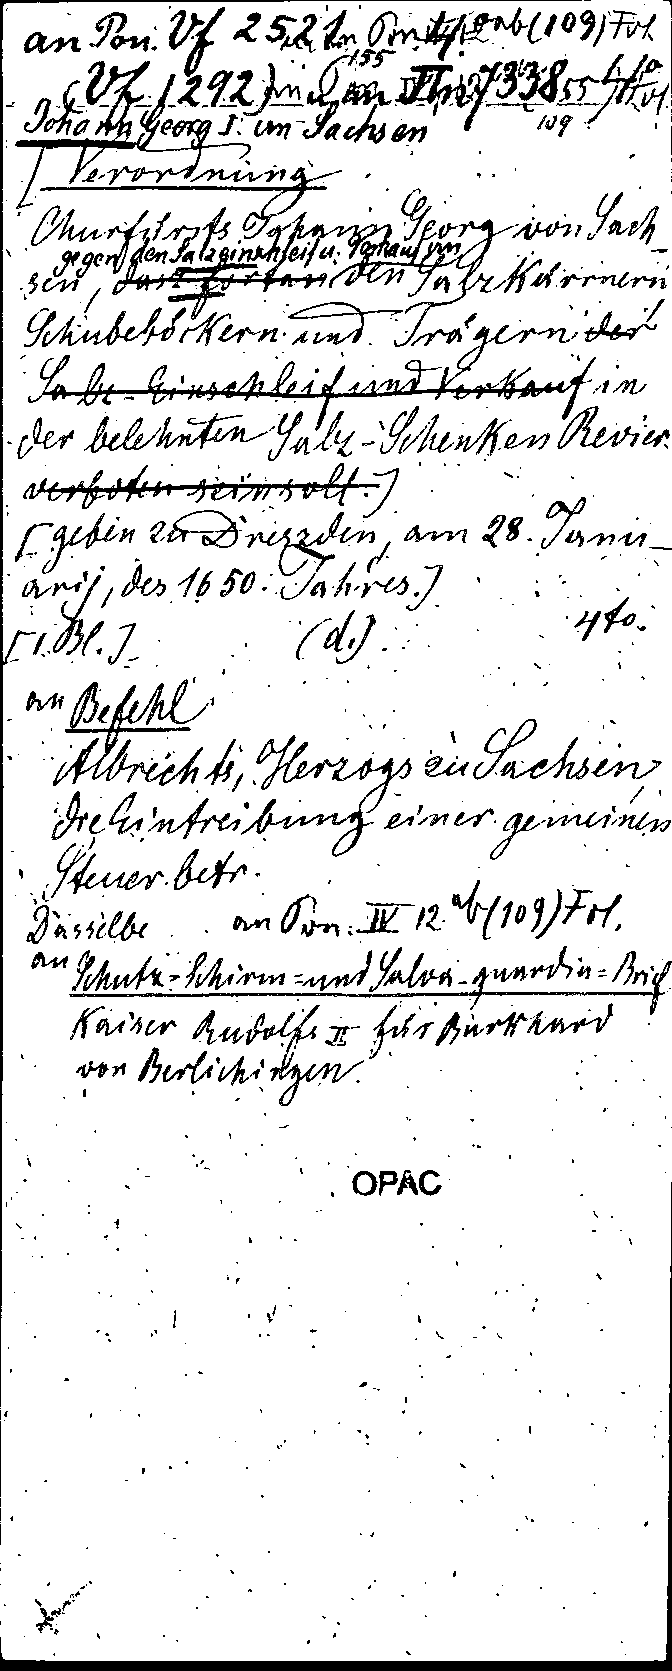 an Pon. Vf 2521 ab (109) Fol
(Vf 1292)
Johann Georg I. von Sachsen
[Verordnung
Churfürsts Johann Georg von Sach-
gegen den Salzeinschleif u. Verkauf von
sen, dasz fortan den Salzkärrnern
Schubeböckern und Trägern der
Salz-Einschleif und Verkauf in
der belehnten Salz-Schenken Revier
verboten sein soll.]
[geben zu Dreszden, am 28. Janu-
arij, des 1650. Jahres.]
[1 Bl.] (d.) 4to.
an Befehl
Albrechts, Herzogs zu Sachsen,
die Eintreibung einer gemeinen
Steuer betr.
Dasselbe an Pon. IV 12 ab (109) Fol.
an Schutz-Schirm-und Salva-guardia-Brief
Kaiser Rudolfs II für Burkhard
von Berlichingen.
OPAC